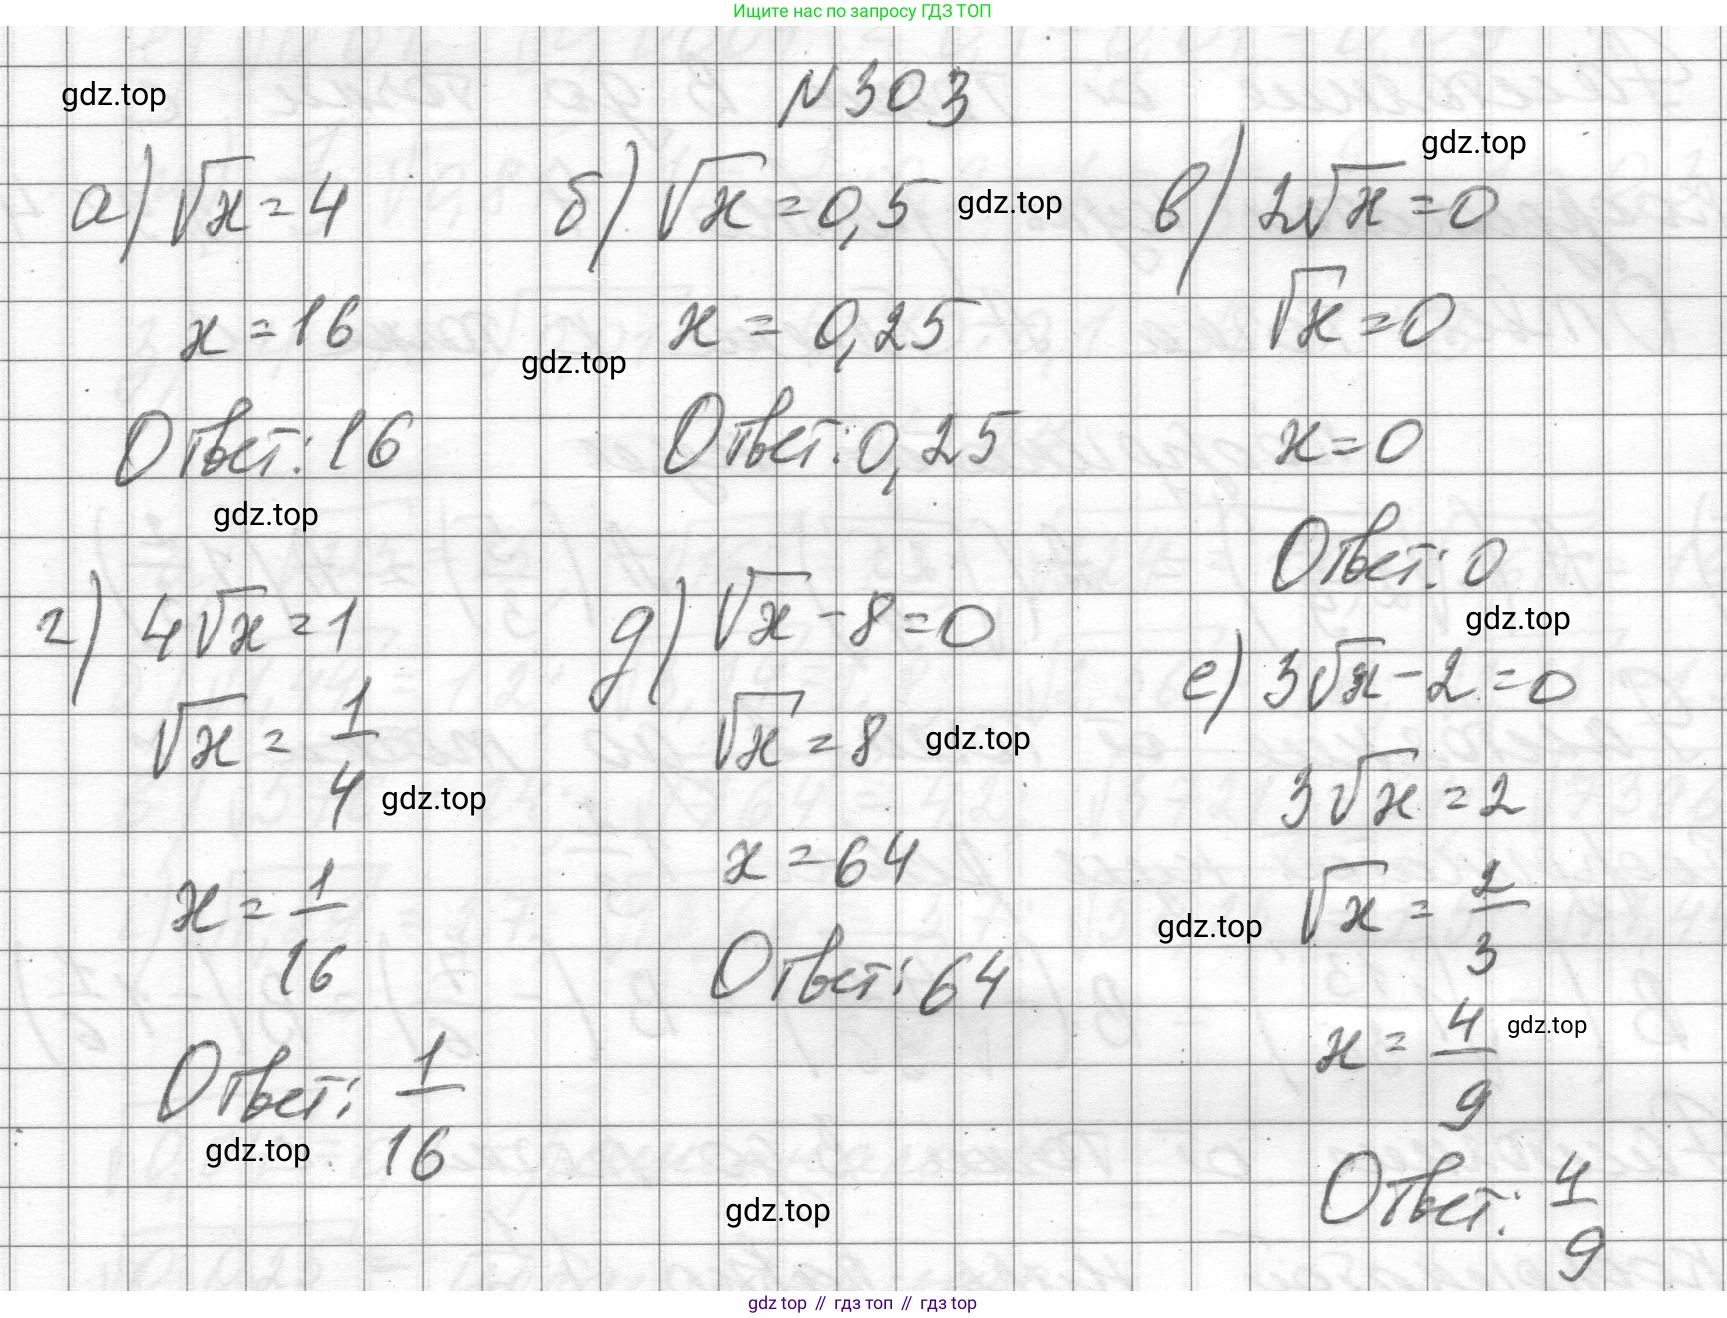 Ищите нас по запросу ГДЗ ТОП
N303
gdz.top
gdz.top
а) √x = 4
x = 16
Ответ: 16
gdz.top
б) √x = 0,5
gdz.top
x = 0,25
gdz.top
Ответ: 0,25
в) 2√x = 0
√x = 0
x = 0
Ответ: 0
gdz.top
г) 4√x = 1
√x = 1/4
gdz.top
x = 1/16
Ответ: 1/16
gdz.top
д) √x - 8 = 0
√x = 8
gdz.top
x = 64
Ответ: 64
gdz.top
е) 3√x - 2 = 0
3√x = 2
√x = 2/3
gdz.top
x = 4/9
gdz.top
Ответ: 4/9
gdz top // гдз топ // гдз top